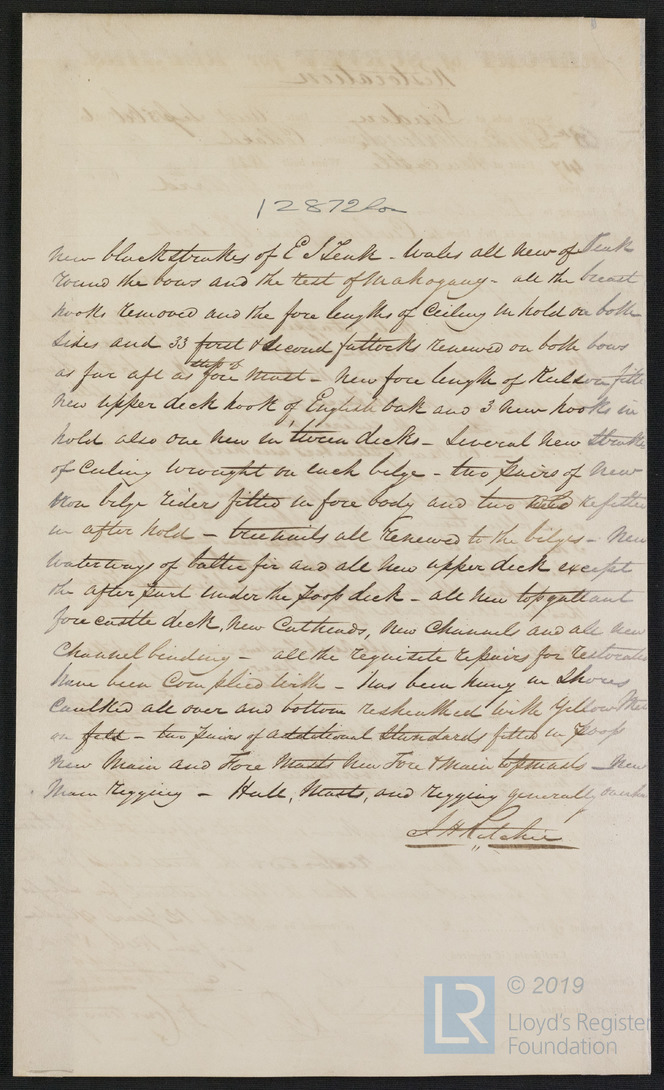 12872 Lon
New blackstrakes of E I Teak - Wales all new of Teak
round the bows and the rest of Mahogany - all the breast
hooks removed and the fore lengths of Ceiling in hold on both
Sides and 33 first & Second futtocks renewed on both bows
as far aft as step of fore Mast - New fore length of Keelson fitted
New upper deck hook of English oak and 3 new hooks in
hold also one new in tween decks - Several new Strakes
of Ceiling wrought on each bilge - two pairs of new
Iron bilge riders fitted in fore body and two refitted
in after hold - treenails all renewed to the bilges - New
waterways of baltic fir and all new upper deck except
the after part under the poop deck - all new topgallant
forecastle deck, New Catheads, New Channels and all new
Channel binding - all the requisite repairs for restoration
have been Complied with - has been hung in Shores
Caulked all over and bottom resheathed with Yellow Metal
on felt - two pairs of additional Standards fitted in poop
New Main and Fore Masts New Fore & Main topmasts - New
Main rigging - Hull, Masts, and rigging generally
J H Ritchie
© 2019
LR
Lloyd's Register
Foundation